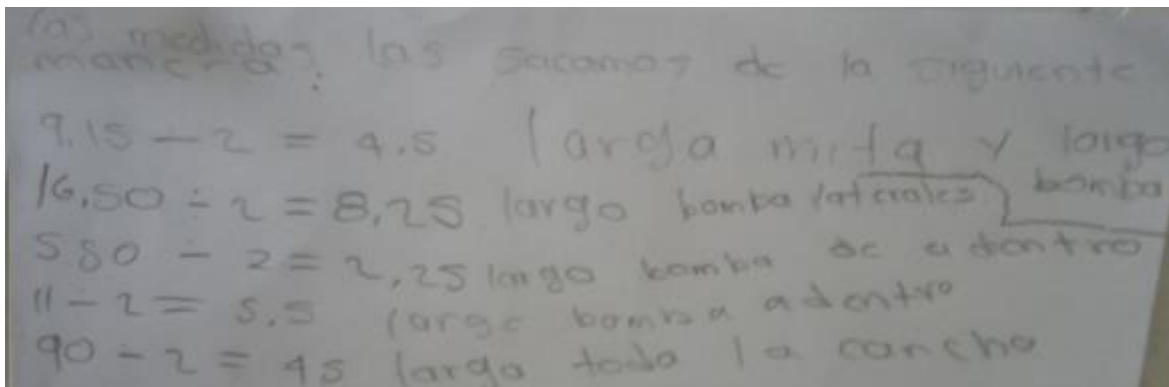 las medidas las sacamos de la siguiente
manera:
9.15 - 2 = 4.5 larga mita y largo bomba
16,50 ÷ 2 = 8,25 largo bomba laterales
550 - 2 = 2,25 largo bomba de adentro
11 - 2 = 5.5 largo bomba adentro
90 - 2 = 45 larga toda la cancha